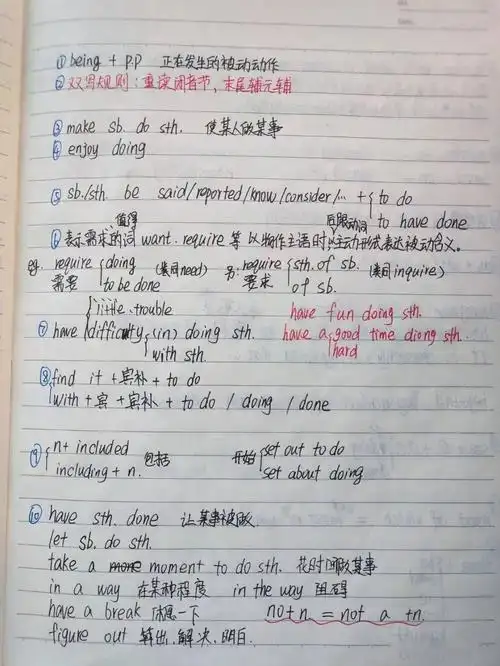 ① being + p.p 正在发生的被动动作
② 双写规则：重读闭音节，末尾辅元辅
③ make sb. do sth. 使某人做某事
④ enjoy doing
⑤ sb./sth. be said/reported/know/consider/… + { to do
to have done
值得 后跟动词
⑥ 表示需求的词 want. require 等以物作主语时，以主动形式表达被动含义。
eg. require { doing (类同need) 另: require { sth. of sb. (类同inquire)
需要 to be done 要求 of sb.
little. trouble have fun doing sth.
⑦ have difficulty (in) doing sth. have a good time diong sth.
with sth. hard
⑧ find it + 宾补 + to do
with + 宾 + 宾补 + to do / doing / done
⑨ { n+ included 包括 开始 { set out to do
including + n. set about doing
⑩ have sth. done 让某事被做
let sb. do sth.
take a more moment to do sth. 花时间做某事
in a way 在某种程度 in the way 阻碍
have a break 休息一下 no+n. = not a +n.
figure out 算出.解决.明白.